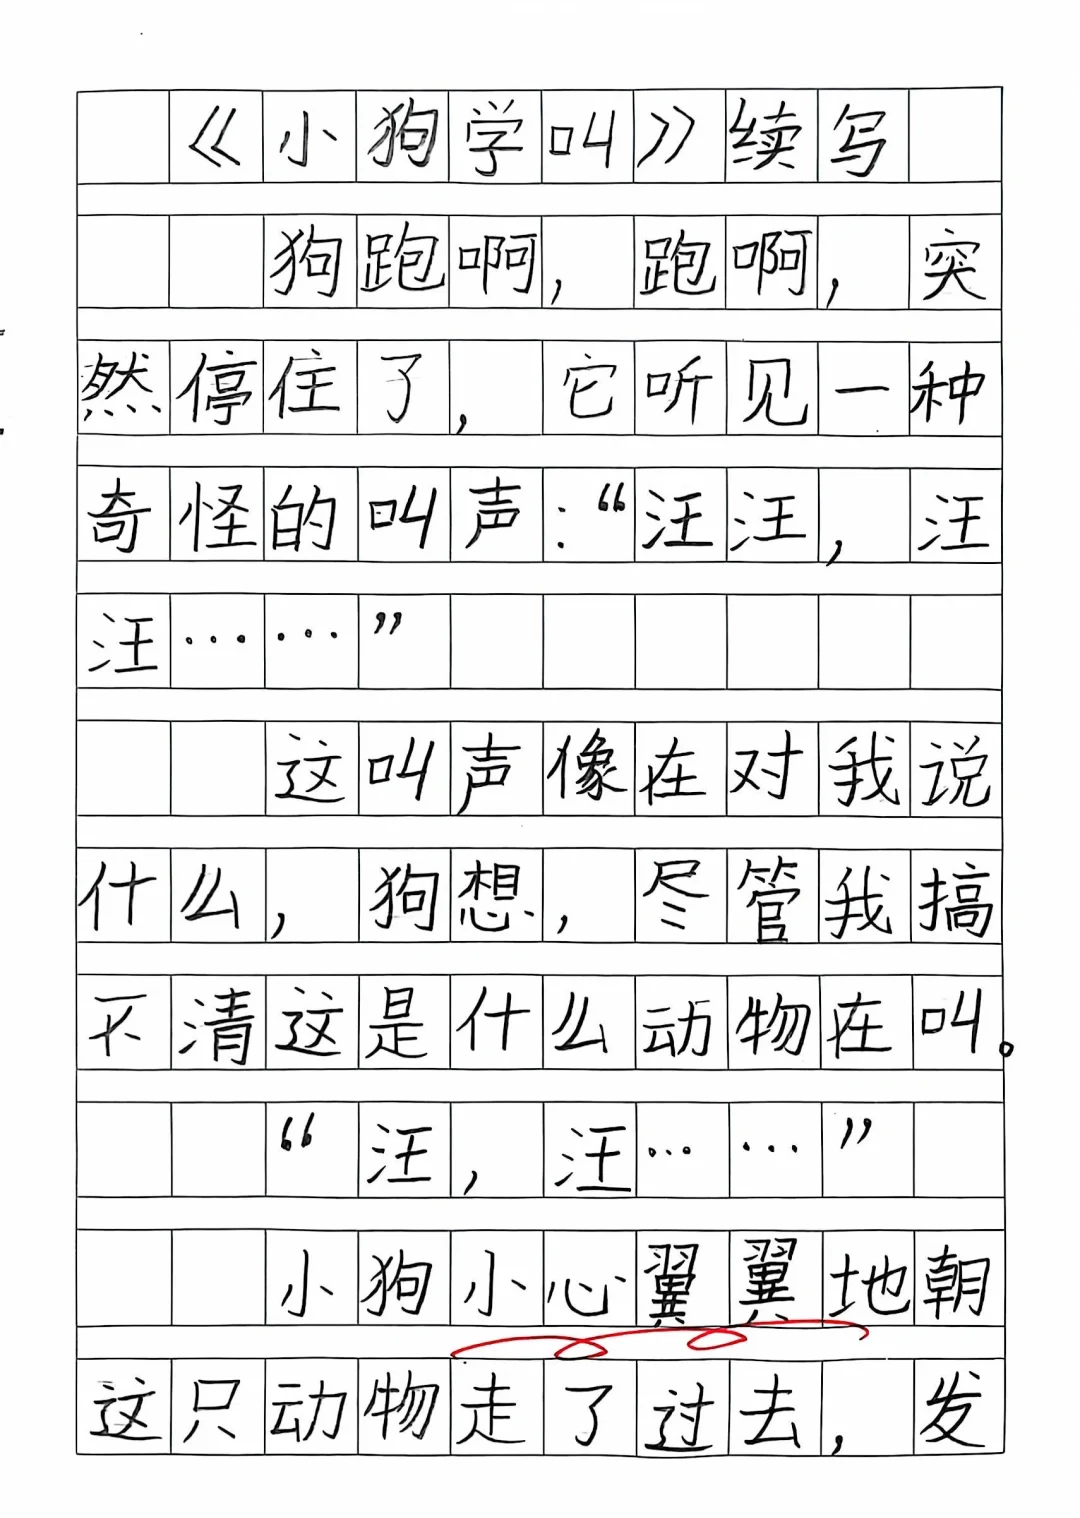 《小狗学叫》续写
狗跑啊，跑啊，突
然停住了，它听见一种
奇怪的叫声：“汪汪，汪
汪……”
这叫声像在对我说
什么，狗想，尽管我搞
不清这是什么动物在叫。
“汪，汪……”
小狗小心翼翼地朝
这只动物走了过去，发